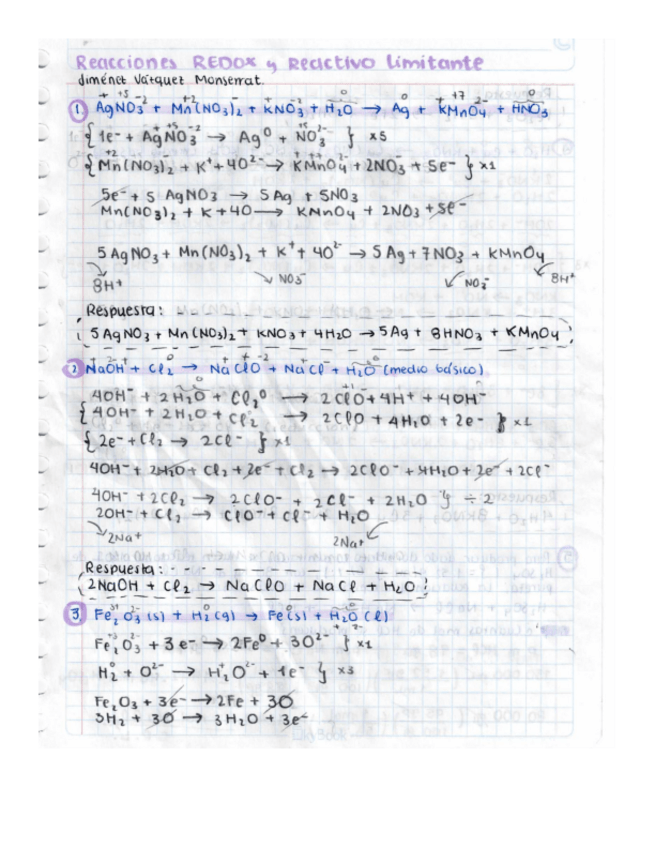 Reacciones REDOX y Reactivo Limitante
Jiménez Vázquez Monserrat.
1. AgNO₃ + Mn(NO₃)₂ + KNO₃ + H₂O → Ag + KMnO₄ + HNO₃
{ 1e⁻ + AgNO₃ → Ag⁰ + NO₃ } x5
{ Mn(NO₃)₂ + K⁺ + 4O²⁻ → KMnO₄ + 2NO₃ + 5e⁻ } x1
5e⁻ + 5 AgNO₃ → 5Ag + 5NO₃
Mn(NO₃)₂ + K + 4O → KMnO₄ + 2NO₃ + 5e⁻
5AgNO₃ + Mn(NO₃)₂ + K⁺ + 4O²⁻ → 5Ag + 7NO₃ + KMnO₄
8H⁺ NO₃⁻ NO₃⁻ 8H⁺
Respuesta:
5AgNO₃ + Mn(NO₃)₂ + KNO₃ + 4H₂O → 5Ag + 8HNO₃ + KMnO₄
2 NaOH + Cl₂ → NaClO + NaCl + H₂O (medio básico)
4OH⁻ + 2H₂O + Cl₂⁰ → 2ClO + 4H⁺ + 4OH⁻
{ 4OH⁻ + 2H₂O + Cl₂ → 2ClO + 4H₂O + 2e⁻ } x1
{ 2e⁻ + Cl₂ → 2Cl⁻ } x1
4OH⁻ + 2H₂O + Cl₂ + 2e⁻ + Cl₂ → 2ClO⁻ + 4H₂O + 2e⁻ + 2Cl⁻
4OH⁻ + 2Cl₂ → 2ClO⁻ + 2Cl⁻ + 2H₂O } ÷ 2
2OH⁻ + Cl₂ → ClO⁻ + Cl⁻ + H₂O
2Na⁺ 2Na⁺
Respuesta:
2NaOH + Cl₂ → NaClO + NaCl + H₂O
3. Fe₂O₃(s) + H₂(g) → Fe(s) + H₂O(l)
Fe₂O₃ + 3e⁻ → 2Fe⁰ + 3O²⁻ } x1
H₂ + O²⁻ → H₂O + 1e⁻ } x3
Fe₂O₃ + 3e⁻ → 2Fe + 3O
3H₂ + 3O → 3H₂O + 3e⁻